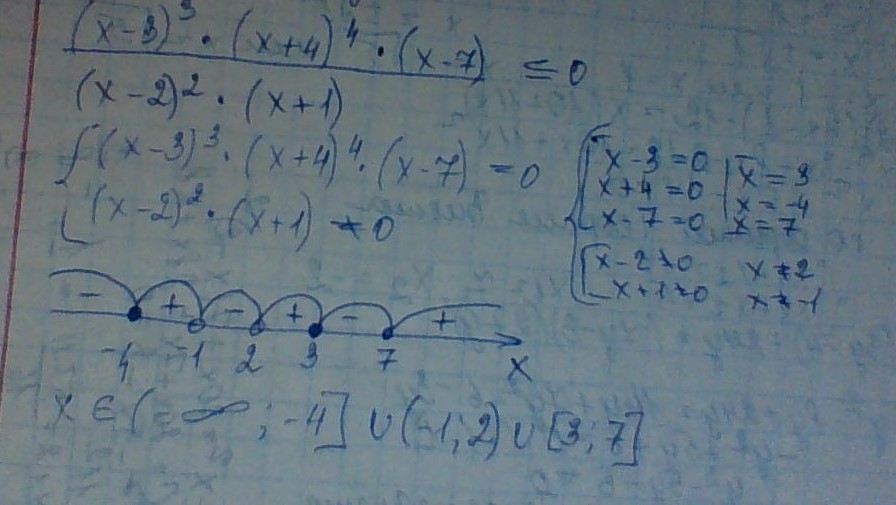 (x-3)³ · (x+4)⁴ · (x-7) ≤ 0
(x-2)² · (x+1)
(x-3)³ · (x+4)⁴ · (x-7) = 0
(x-2)² · (x+1) ≠ 0
x-3=0 x=3
x+4=0 x=-4
x-7=0 x=7
x-2≠0 x≠2
x+1≠0 x≠-1
- + - + - +
-4 -1 2 3 7 x
x ∈ (-∞; -4] ∪ (-1; 2) ∪ [3; 7]